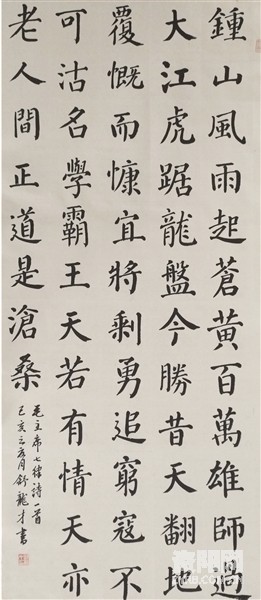 鍾山風雨起蒼黃百萬雄師過
大江虎踞龍盤今勝昔天翻地
覆慨而慷宜將剩勇追窮寇不
可沽名學霸王天若有情天亦
老人間正道是滄桑
毛主席七律詩一首
己亥月舒龍才書